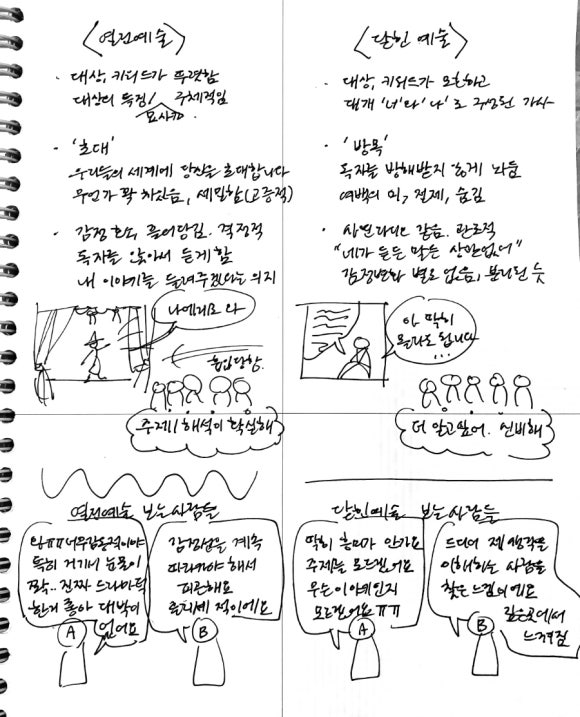 <열린예술>
· 대상, 키워드가 뚜렷함
대상의 특징/ 주체적임
묘사
· '초대'
우리들의 세계에 당신을 초대합니다
무언가 꽉 차있음, 세밀함(고증적)
· 감정호소, 끌어당김. 격정적
독자를 앉아서 듣게 함
내 이야기를 들려주겠다는 의지
나에게로 와
흡입 당함.
주제/해석이 확실해
<닫힌 예술>
· 대상, 키워드가 모호하고
대개 '너'와 '나'로 구성된 가사
· '방목'
독자를 방해받지 않게 놔둠
여백의 미, 절제, 숨김
· 사연라디오 같음. 관조적
"네가 듣든 말든 상관없어"
감정변화 별로 없음, 분리된 듯
아 딱히
몰라도 됩니다
...
더 알고싶어. 신비해
열린예술 보는 사람들
와ㅠㅠ너무감동적이야
특히 거기서 눈물이
쫙.. 진짜 드라마틱
한게 좋아 대박이
없어요
A
감정선을 계속
따라가야 해서
피곤해요
B
닫힌예술 보는 사람들
딱히 흥미가 안가요
주제를 모르겠어요
무슨이야기인지
모르겠어요ㅠㅠ
A
드디어 제 생각을
이해하는 사람을
찾은 느낌이에요
깊은곳에서
느껴짐
B